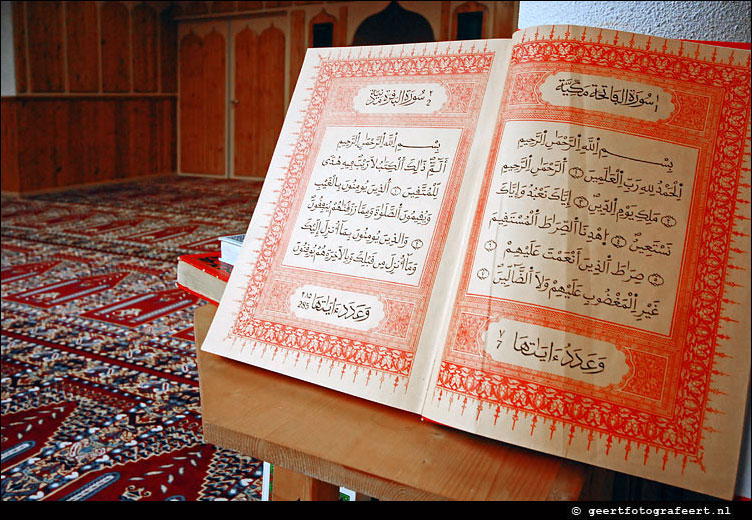 ١ سُورَةُ الْفَاتِحَةِ مَكِّيَّة
بِسْمِ اللهِ الرَّحْمٰنِ الرَّحِيمِ
اَلْحَمْدُ لِلهِ رَبِّ الْعَالَمِينَ اَلرَّحْمٰنِ الرَّحِيمِ
مَلِكِ يَوْمِ الدِّينِ إِيَّاكَ نَعْبُدُ وَإِيَّاكَ
نَسْتَعِينُ اهْدِنَا الصِّرَاطَ الْمُسْتَقِيمَ
صِرَاطَ الَّذِينَ أَنْعَمْتَ عَلَيْهِمْ
غَيْرِ الْمَغْضُوبِ عَلَيْهِمْ وَلَا الضَّالِّينَ
وَعَدَدُ ءَايَاتِهَا ٧ 7
٢ 2 سُورَةُ الْبَقَرَةِ مَدَنِيَّة
بِسْمِ اللهِ الرَّحْمٰنِ الرَّحِيمِ
أَلَمِّ ذَالِكَ الْكِتَابُ لَا رَيْبَ فِيهِ هُدًى
لِلْمُتَّقِينَ الَّذِينَ يُومِنُونَ بِالْغَيْبِ
وَيُقِيمُونَ الصَّلَوٰةَ وَمِمَّا رَزَقْنَاهُمْ يُنفِقُونَ
وَالَّذِينَ يُومِنُونَ بِمَا أُنزِلَ إِلَيْكَ
وَمَا أُنزِلَ مِن قَبْلِكَ وَبِالْآخِرَةِ هُمْ يُوقِنُونَ
وَعَدَدُ ءَايَاتِهَا ٢٨٥ 285
© geertfotografeert.nl